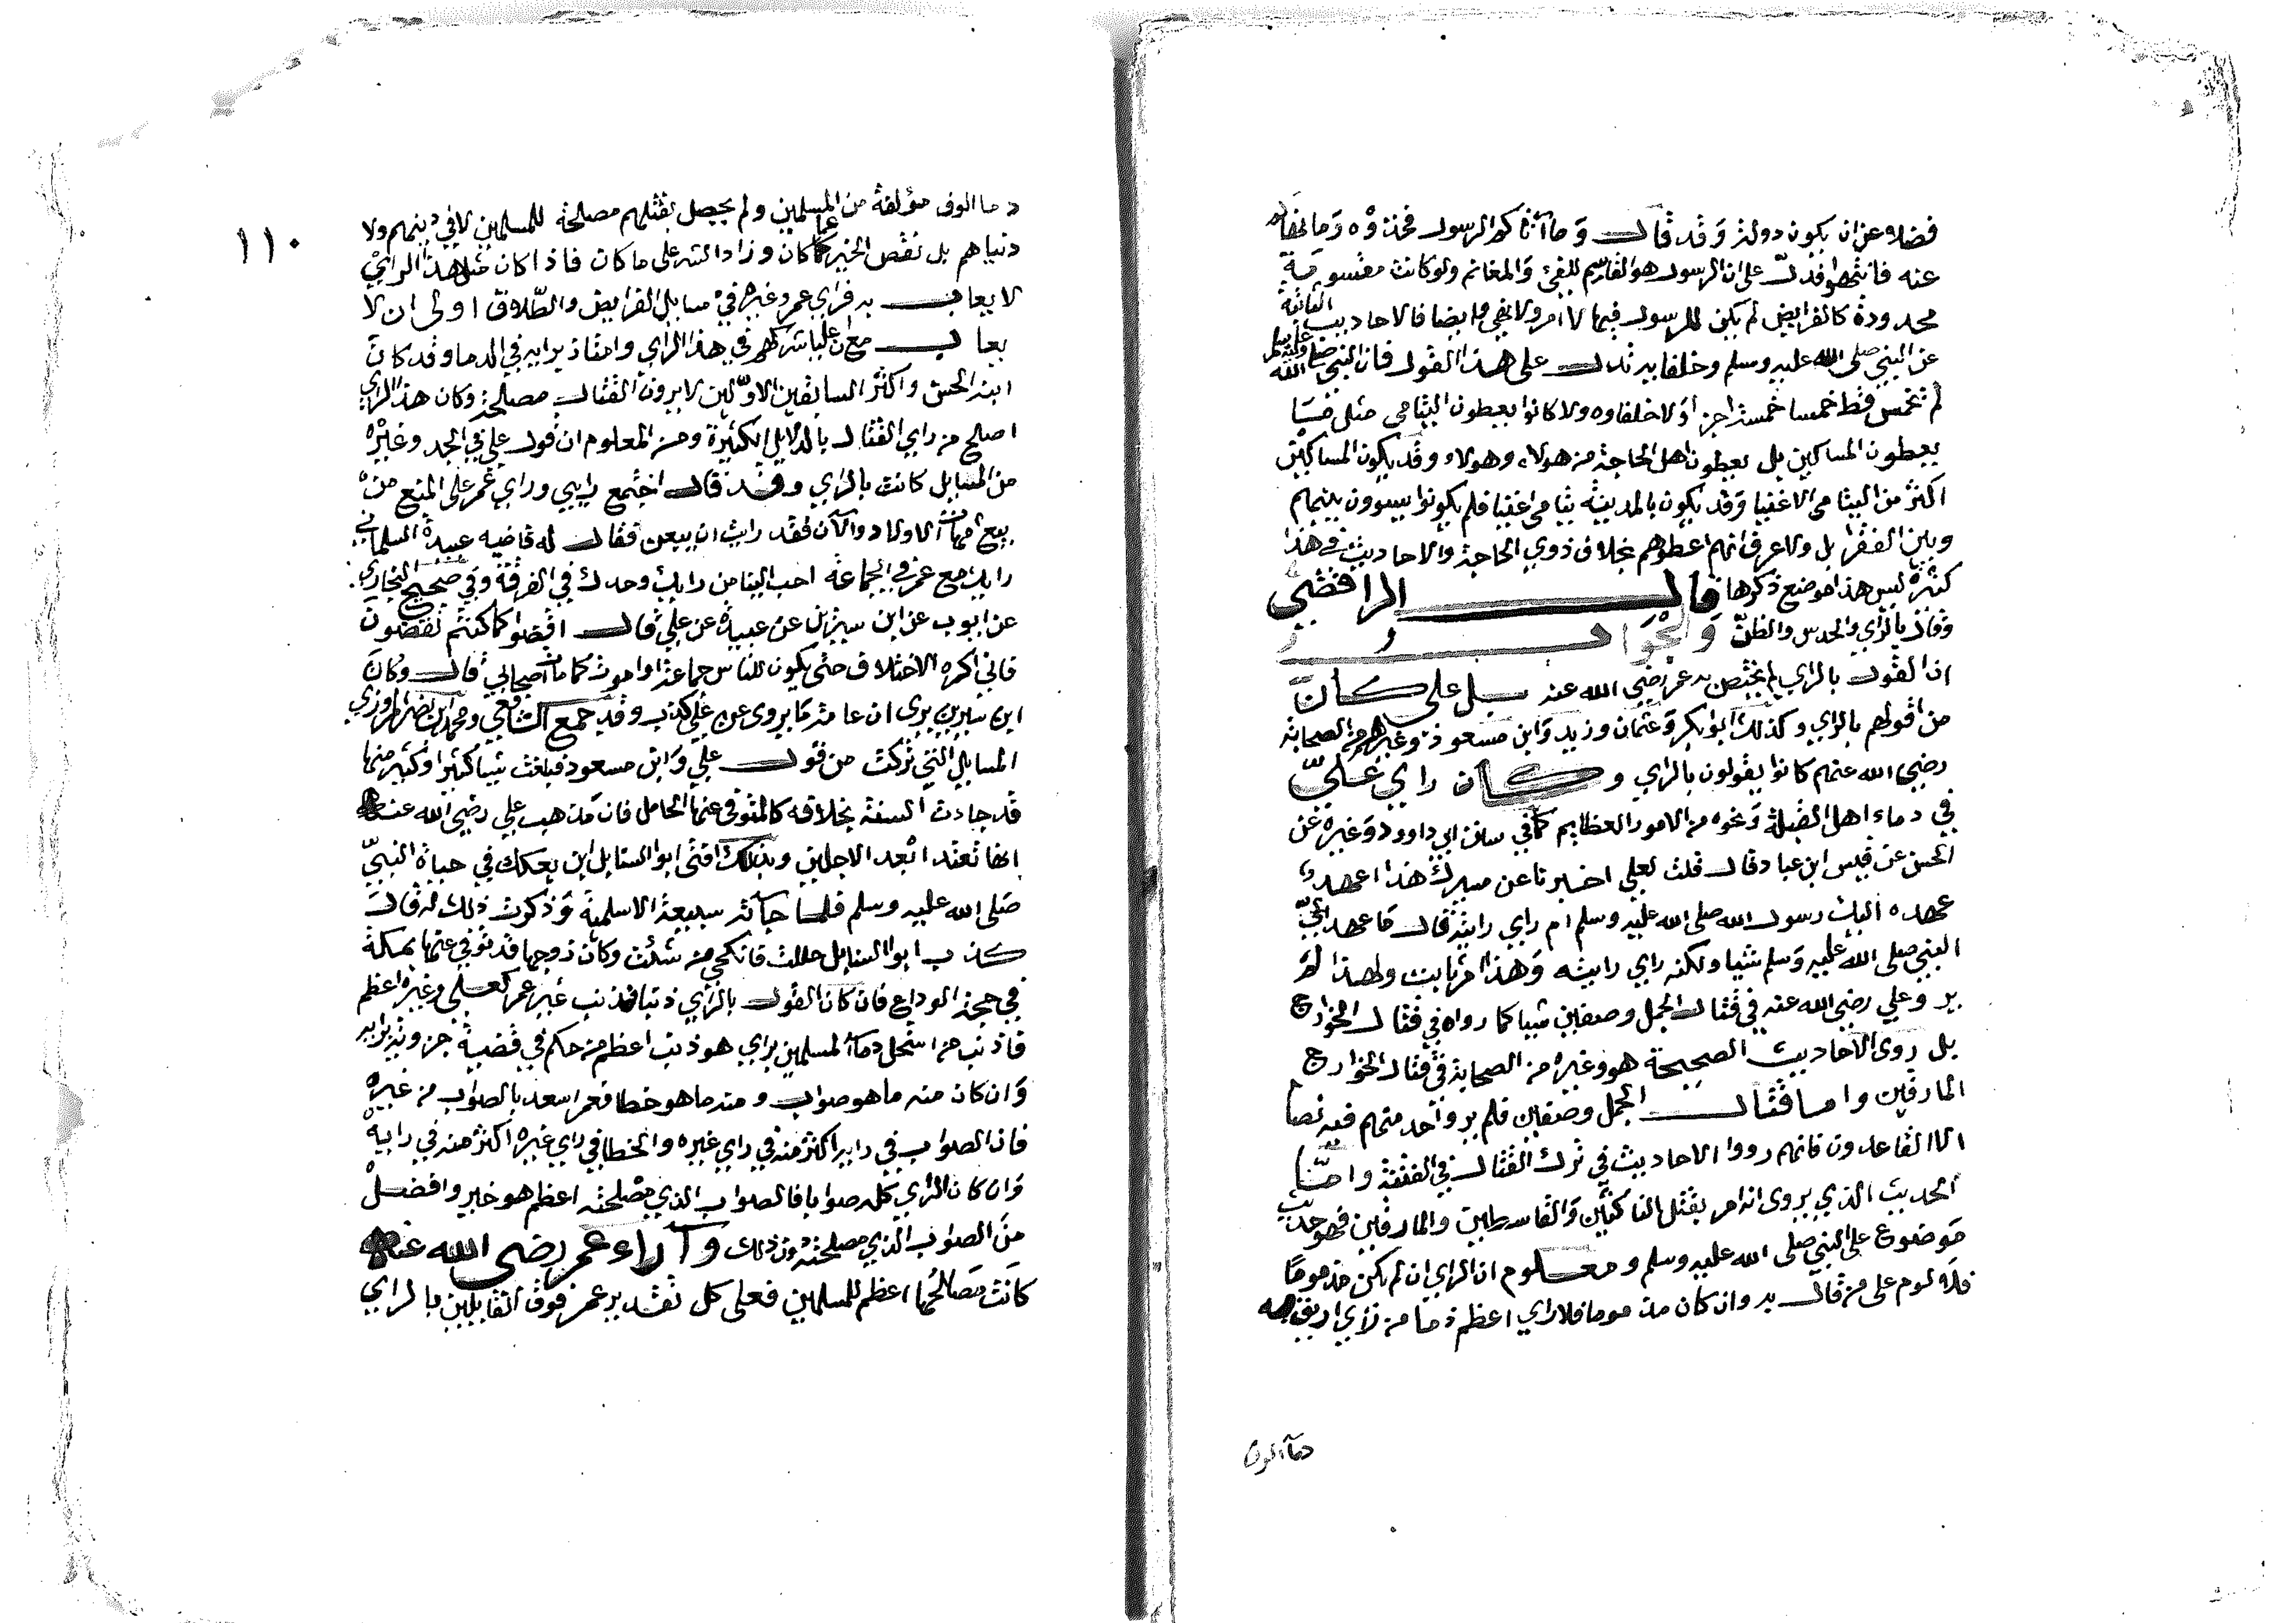 فضلا عن ان يكون دولة وقد قال وما آتاكم الرسول فخذوه وما نهاكم
عنه فانتهوا فدل على ان الرسول هو القاسم للفيء والمغانم ولو كانت مقسومة
محدودة كالفرايض لم يكن للرسول فيها لا امر ولا نهي وايضا فالاحاديث الثابتة
عن النبي صلى الله عليه وسلم وخلفايه تدل على هذا القول فان النبي صلى الله عليه وسلم
لم يخمس قط خمسا خمسة اجزا ولا خلفاوه ولا كانوا يعطون اليتامى مثل ما
يعطون المساكين بل يعطون اهل الحاجة من هولاء وهولاء وقد يكون المساكين
اكثر من اليتامى الاغنيا وقد يكون بالمدينة يتامى اغنيا فلم يكونوا يسوون بينهم
وبين الفقرا بل ولا عرف انهم اعطوهم بخلاف ذوي الحاجة والاحاديث في هذا
كثيرة ليس هذا موضع ذكرها قال الرافضي
وقال بالراي والحدس والظن والجواب
ان القول بالراي لم يختص به عمر رضي الله عنه بل علي كان
من اقولهم بالراي وكذلك ابوا بكر وعثمان وزيد وابن مسعود وغيرهم من الصحابة
رضي الله عنهم كانوا يقولون بالراي وكان راي علي
في دماء اهل القبلة ونحوه من الامور العظايم كما في سنن ابي داوود وغيره عن
الحسن عن قيس ابن عباد قال قلت لعلي اخبرنا عن مسيرك هذا اعهد
عهده اليك رسول الله صلى الله عليه وسلم ام راي رايته قال ما عهد الي
النبي صلى الله عليه وسلم شيا ولكنه راي رايته وهذا امر ثابت ولهذا لم
يرو علي رضي الله عنه في قتال الجمل وصفين شيا كما رواه في قتال الخوارج
بل روى الاحاديث الصحيحة هو وغيره من الصحابة في قتال الخوارج
المارقين واما قتال الجمل وصفين فلم يرو احد منهم فيه نصا
الا القاعدون فانهم رووا الاحاديث في ترك القتال في الفتنة واما
الحديث الذي يروى انه امر بقتل الناكثين والقاسطين والمارقين فهو حديث
موضوع على النبي صلى الله عليه وسلم ومعلوم ان الراي ان لم يكن مذموما
فلا لوم على من قال به وان كان مذموما فلا راي اعظم ذما من راي اريق به
دما الوف
١١٠
دما الوف مؤلفة من المسلمين ولم يحصل بقتلهم مصلحة للمسلمين لا في دينهم ولا
دنياهم بل نقص الخير عما كان وزاد الشر على ما كان فاذا كان مثل هذا الراي
لا يعاب به فراي عمر وغيره في مسايل الفرايض والطلاق اولى ان لا
يعاب مع ان عليا شركهم في هذا الراي وامتاذ برايه في الدما وقد كان
ابنه الحسن واكثر السابقين الاولين لا يرون القتال مصلحة وكان هذا الراي
اصلح من راي القتال بالدلايل الكثيرة ومن المعلوم ان قول علي في الجد وغيره
من المسايل كانت بالراي وقد قال اجتمع رايي وراي عمر على المنع من
بيع امهات الاولاد والآن فقد رايت ان يبعن فقال له قاضيه عبيدة السلماني
رايك مع عمر في الجماعة احب الينا من رايك وحدك في الفرقة وفي صحيح البخاري
عن ايوب عن ابن سيرين عن عبيدة عن علي قال اقضوا كما كنتم تقضون
فاني اكره الاختلاف حتى يكون للناس جماعة او اموت كما مات اصحابي قال وكان
ابن سيرين يرى ان عامة ما يروى عن علي كذب وقد جمع الشافعي ومحمد ابن نصر المروزي
المسايل التي تركت من قول علي وابن مسعود فبلغت شيا كثيرا وكثير منها
قد جاءت السنة بخلافه كالمتوفى عنها الحامل فان مذهب علي رضي الله عنه
انها تعتد ابعد الاجلين وبذلك افتى ابوا السنابل ابن بعكك في حياة النبي
صلى الله عليه وسلم فلما جاته سبيعة الاسلمية وذكرت ذلك له قال
كذب ابوا السنابل حللت فانكحي من شئت وكان زوجها قد توفي عنها بمكة
في حجة الوداع فان كان القول بالراي ذنبا فذنب غير عمر كعلي وغيره اعظم
فان ذنب من استحل دماء المسلمين براي هو ذنب اعظم من حكم في قضية جزوية برايه
وان كان منه ما هو صواب ومنه ما هو خطا فعمر اسعد بالصواب من غيره
فان الصواب في رايه اكثر منه في راي غيره والخطا في راي غيره اكثر منه في رايه
وان كان الراي كله صوابا فالصواب الذي مصلحته اعظم هو خير وافضل
من الصواب الذي مصلحته دون ذلك وآراء عمر رضي الله عنه
كانت مصالحها اعظم للمسلمين فعلى كل تقدير عمر فوق القايلين بالراي